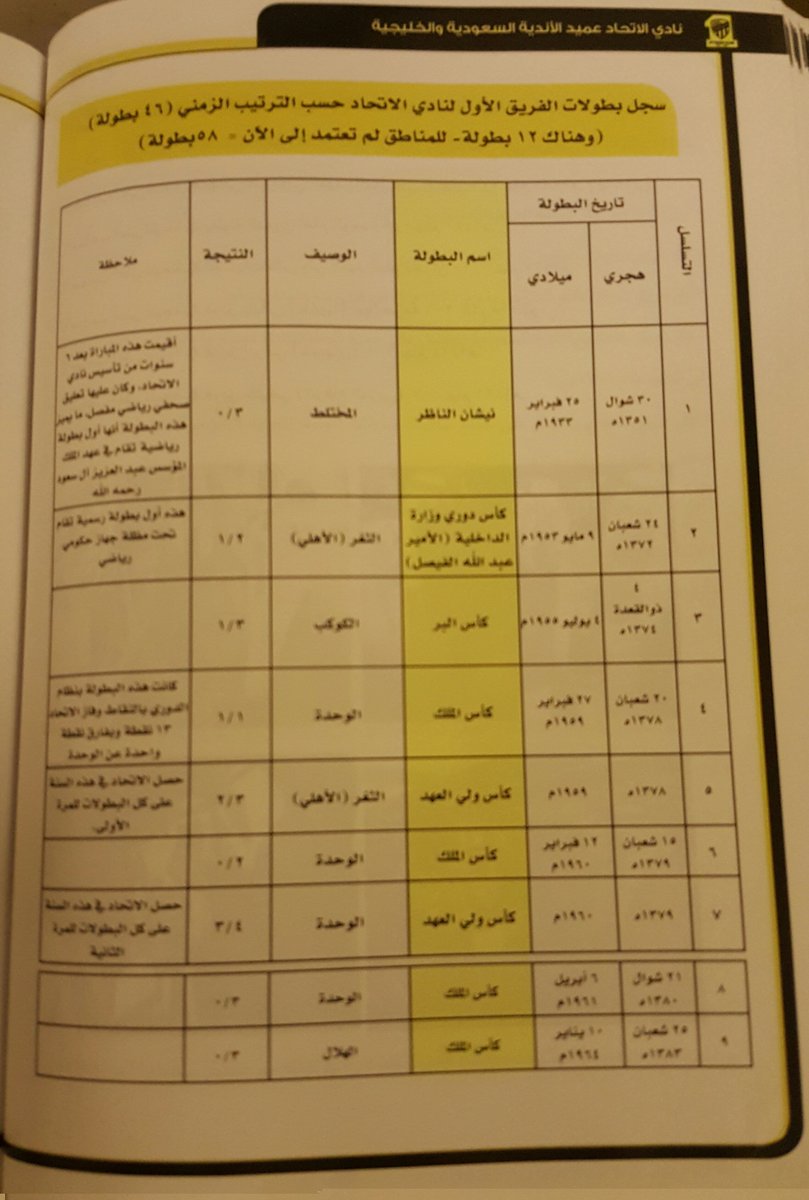 نادي الاتحاد عميد الأندية السعودية والخليجية
سجل بطولات الفريق الأول لنادي الاتحاد حسب الترتيب الزمني (٤٦ بطولة)
(وهناك ١٢ بطولة- للمناطق لم تعتمد إلى الآن = ٥٨بطولة)
التسلسل
تاريخ البطولة
هجري
ميلادي
اسم البطولة
الوصيف
النتيجة
ملاحظة
١
٣٠ شوال
١٣٥١هـ
٢٥ فبراير
١٩٣٣م
نيشان الناظر
المختلط
٠/٣
أقيمت هذه المباراة بعد ٦
سنوات من تأسيس نادي
الاتحاد، وكان عليها تعليق
صحفي رياضي مفصل، ما يميز
هذه البطولة أنها أول بطولة
رياضية تقام في عهد الملك
المؤسس عبد العزيز آل سعود
رحمه الله
٢
٢٤ شعبان
١٣٧٢هـ
٩ مايو ١٩٥٣م
كأس دوري وزارة
الداخلية (الأمير
عبد الله الفيصل)
الثغر (الأهلي)
١/٢
هذه أول بطولة رسمية تقام
تحت مظلة جهاز حكومي
رياضي
٣
٤
ذوالقعدة
١٣٧٤هـ
٤ يوليو ١٩٥٥م
كأس البر
الكوكب
١/٣
٤
٢٠ شعبان
١٣٧٨هـ
٢٧ فبراير
١٩٥٩م
كأس الملك
الوحدة
١/١
كانت هذه البطولة بنظام
الدوري بالنقاط وفاز الاتحاد
١٣ نقطة وبفارق نقطة
واحدة عن الوحدة
٥
١٣٧٨هـ
١٩٥٩م
كأس ولي العهد
الثغر (الأهلي)
٢/٣
حصل الاتحاد في هذه السنة
على كل البطولات للمرة
الأولى.
٦
١٥ شعبان
١٣٧٩هـ
١٢ فبراير
١٩٦٠م
كأس الملك
الوحدة
٠/٢
٧
١٣٧٩هـ
١٩٦٠م
كأس ولي العهد
الوحدة
٣/٤
حصل الاتحاد في هذه السنة
على كل البطولات للمرة
الثانية
٨
٢١ شوال
١٣٨٠هـ
٦ أبريل
١٩٦١م
كأس الملك
الوحدة
٠/٣
٩
٢٥ شعبان
١٣٨٣هـ
١٠ يناير
١٩٦٤م
كأس الملك
الهلال
٠/٣